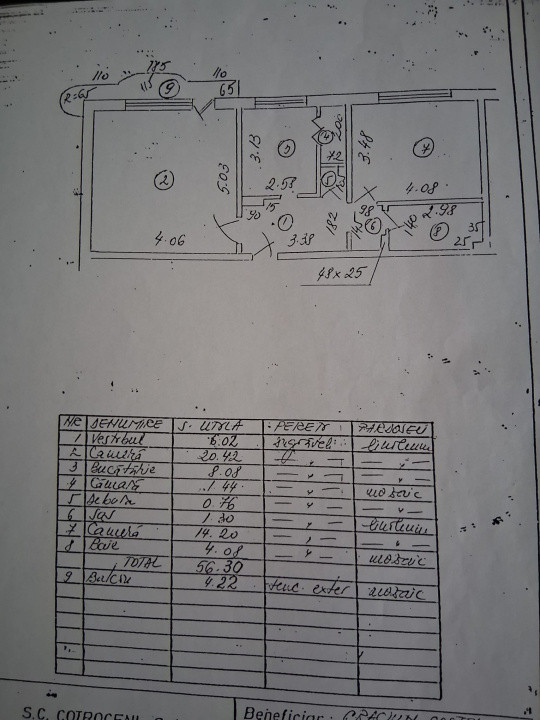 110 185 110
R=65 9 65
2 5.03 4.06
3.13 3 2.53
4 2.06 72
5
3.48 7 4.08
90 15 1 3.38 182
98 6 145
140 2.98 8 35 25
48x25
NR DENUMIRE S. UTILA PERETI PARDOSELI
1 Vestibul 6.02 zugrăveli linoleum
2 Cameră 20.42 — " — — " —
3 Bucătărie 8.08 — " — — " —
4 Cămară 1.44 — " — mozaic
5 Debara 0.76 — " — — " —
6 Sas 1.30 — " — linoleum
7 Cameră 14.20 — " — — " —
8 Baie 4.08 — " — mozaic
TOTAL 56.30
9 Balcon 4.22 tenc. exter mozaic
S.C. COTROCENI Beneficiar: CRACIUN